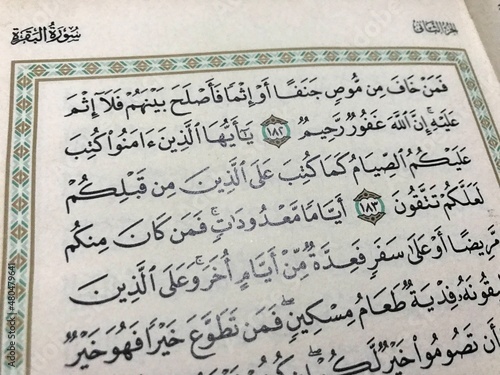 الجزء الثاني
سورة البقرة
فَمَنْ خَافَ مِن مُّوصٍ جَنَفًا أَوْ إِثْمًا فَأَصْلَحَ بَيْنَهُمْ فَلَآ إِثْمَ
عَلَيْهِ ۚ إِنَّ ٱللَّهَ غَفُورٌ رَّحِيمٌ ١٨٢ يَـٰٓأَيُّهَا ٱلَّذِينَ ءَامَنُوا۟ كُتِبَ
عَلَيْكُمُ ٱلصِّيَامُ كَمَا كُتِبَ عَلَى ٱلَّذِينَ مِن قَبْلِكُمْ
لَعَلَّكُمْ تَتَّقُونَ ١٨٣ أَيَّامًا مَّعْدُودَٰتٍ ۚ فَمَن كَانَ مِنكُم
مَّرِيضًا أَوْ عَلَىٰ سَفَرٍ فَعِدَّةٌ مِّنْ أَيَّامٍ أُخَرَ ۚ وَعَلَى ٱلَّذِينَ
فِدْيَةٌ طَعَامُ مِسْكِينٍ ۖ فَمَن تَطَوَّعَ خَيْرًا فَهُوَ خَيْرٌ
تَصُومُوا۟ خَيْرٌ لَّكُمْ ۖ
Adobe Stock | 480479641